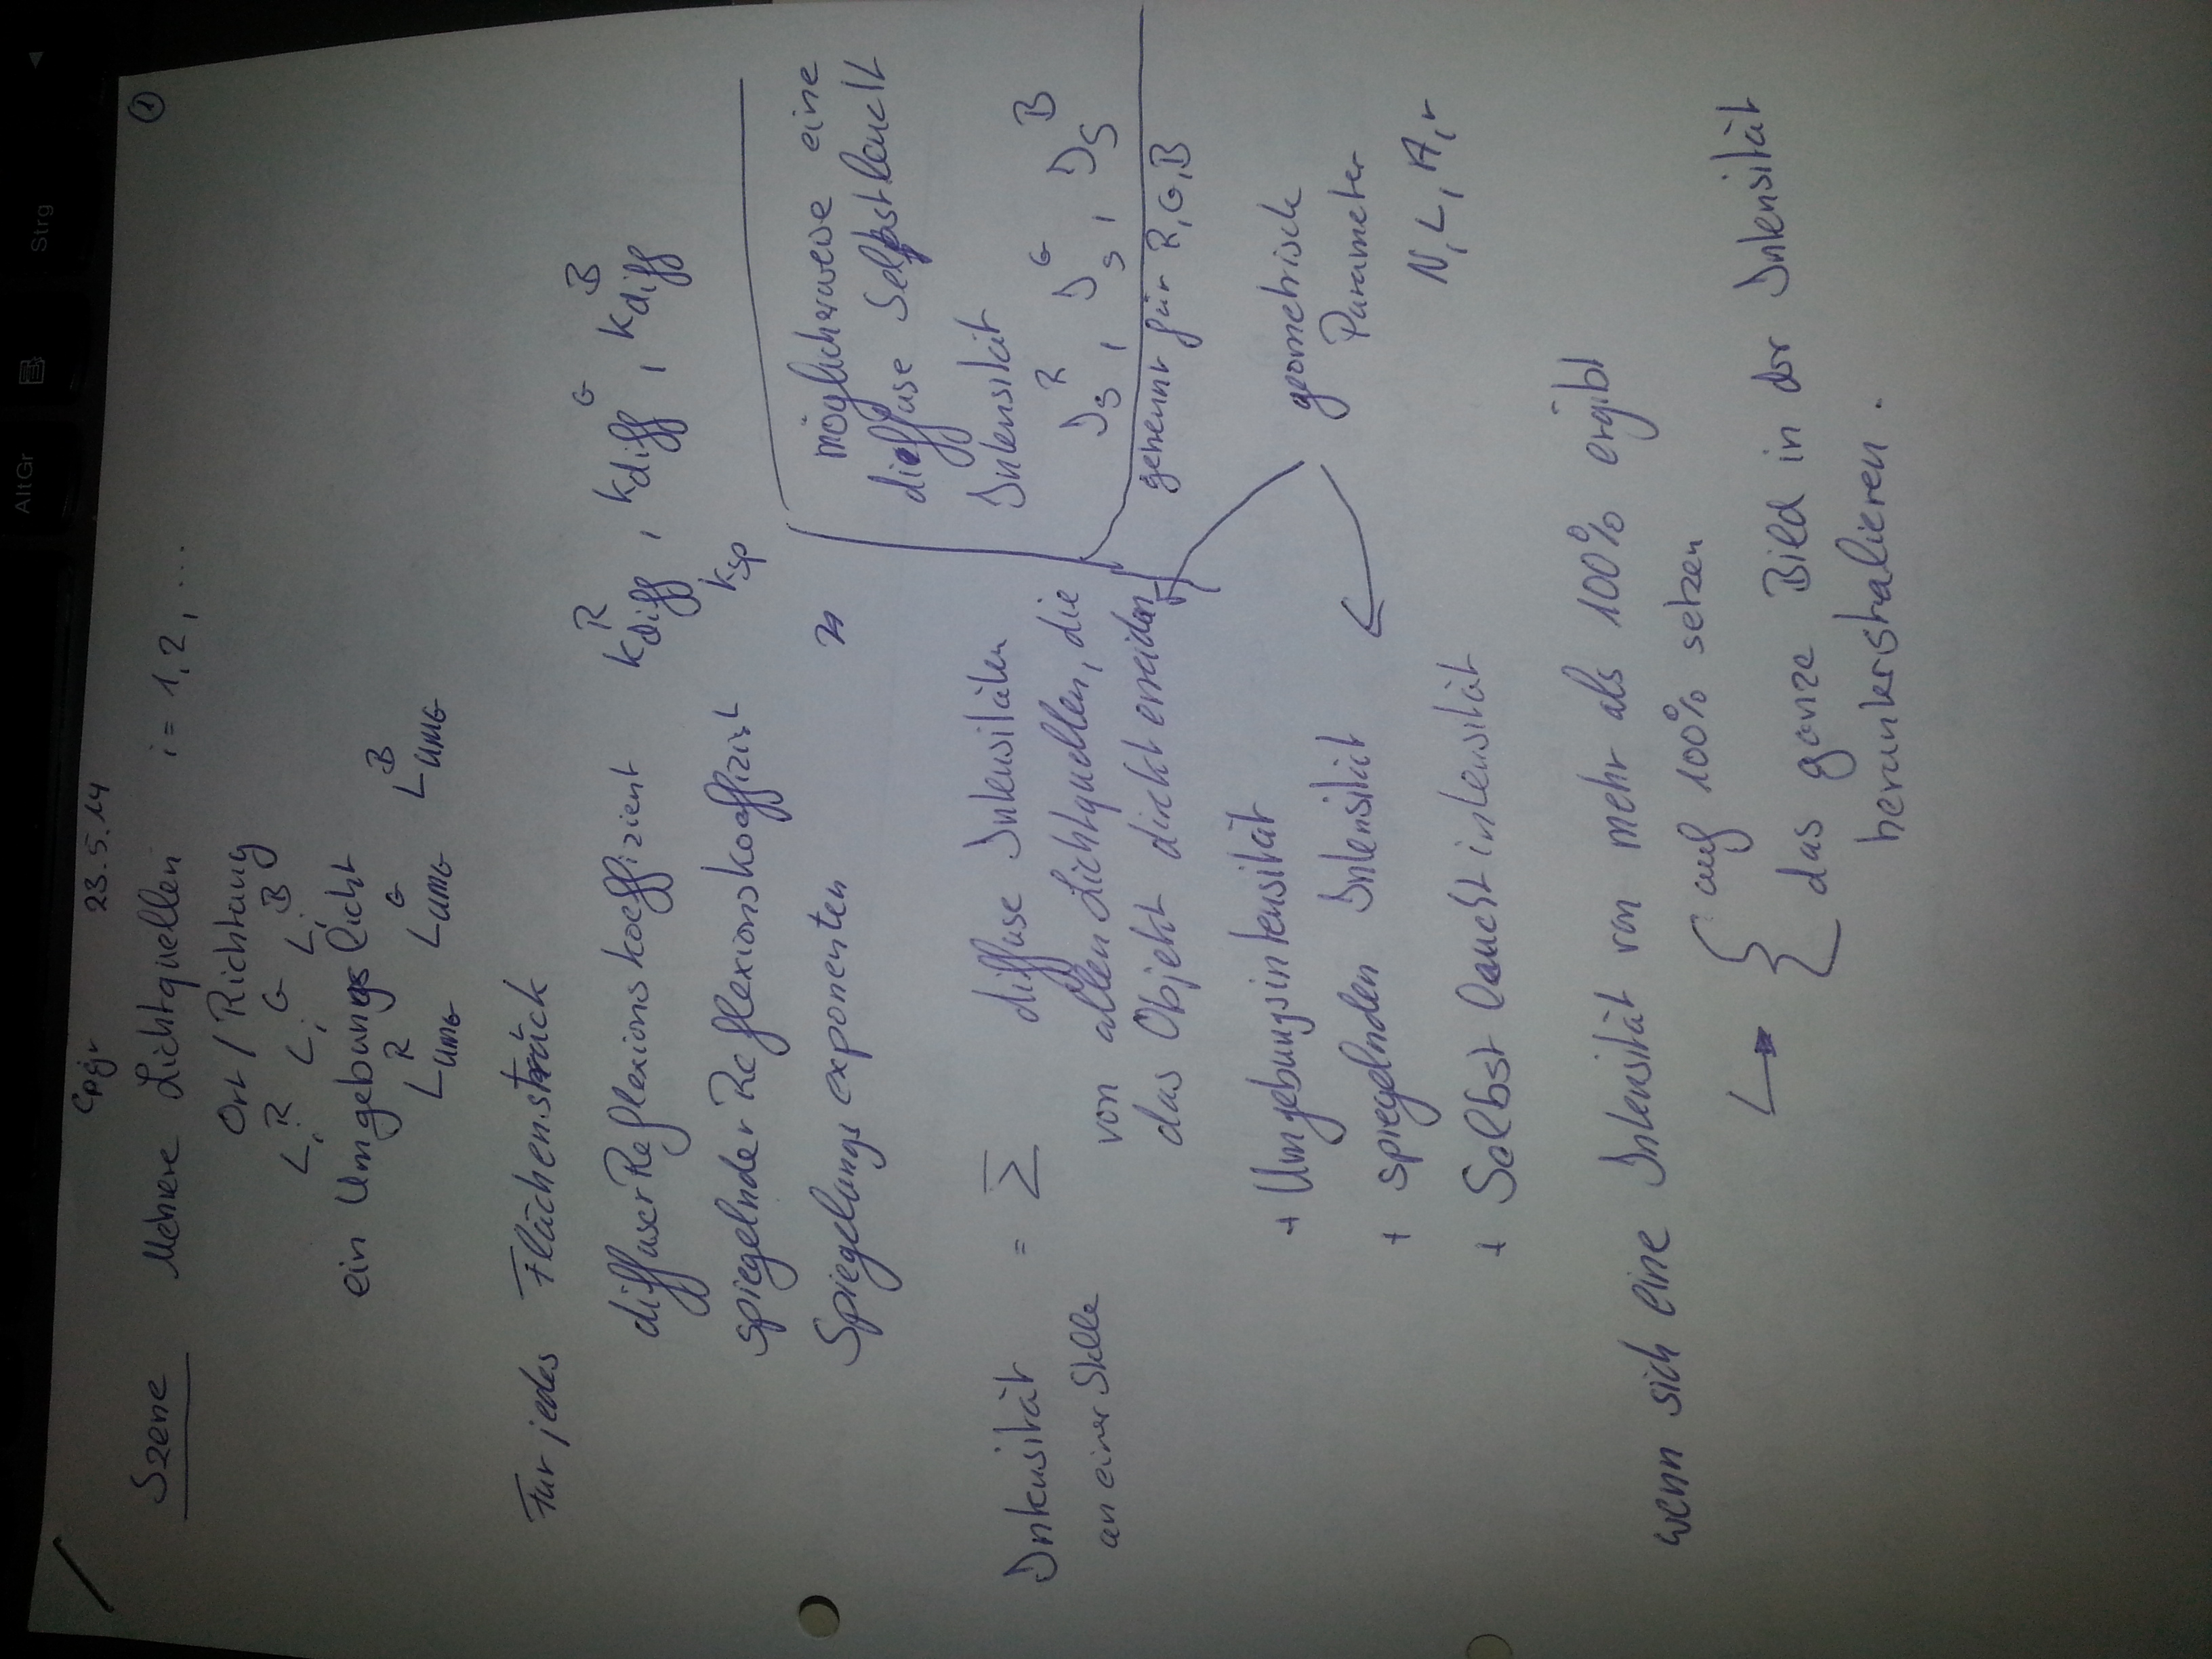 AltGr Strg
Cpgr 23.5.14 1
Szene Mehrere Lichtquellen i = 1, 2, ...
Ort / Richtung
L_i^R L_i^G L_i^B
ein Umgebungslicht
L_UMG^R L_UMG^G L_UMG^B
Für jedes Flächenstück
diffuser Reflexionskoeffizient k_diff^R , k_diff^G , k_diff^B
spiegelnder Reflexionskoeffizient k_sp
Spiegelungs exponenten n
möglicherweise eine
diffuse Selbstleucht
Intensität
I_S^R , I_S^G , I_S^B
Intensität = Σ diffuse Intensitäten
an einer Stelle von allen Lichtquellen, die
das Objekt direkt erreichen
getrennt für R, G, B
+ Umgebungsintensität
+ spiegelnden Intensität
+ Selbst leucht intensität
geometrisch
Parameter
N, L, A, r
wenn sich eine Intensität von mehr als 100% ergibt
auf 100% setzen
das ganze Bild in der Intensität
herunterskalieren.